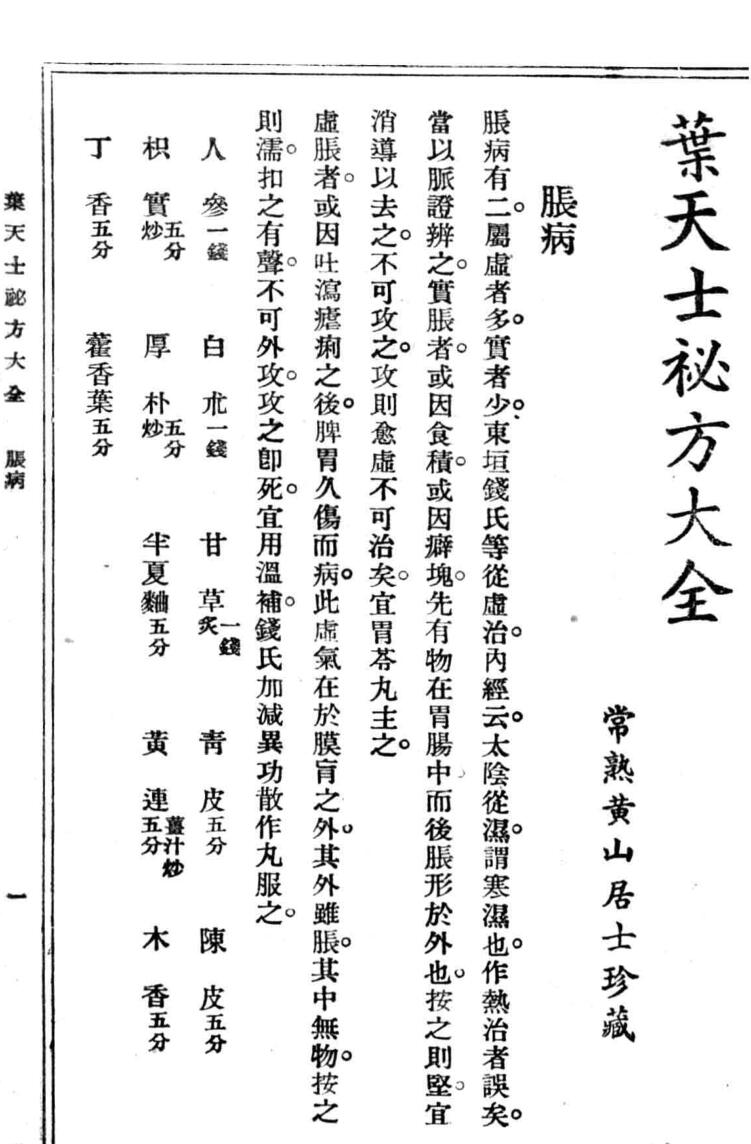 葉天士祕方大全
常熟黄山居士珍藏
脹病
脹病有二。屬虛者多。實者少。東垣錢氏等從虛治。內經云。太陰從濕。謂寒濕也。作熱治者誤矣。
當以脈證辨之。實脹者。或因食積。或因癖塊。先有物在胃腸中。而後脹形於外也。按之則堅。宜
消導以去之。不可攻之。攻則愈虛不可治矣。宜胃苓丸主之。
虛脹者。或因吐瀉瘧痢之後。脾胃久傷而病。此虛氣在於膜肓之外。其外雖脹。其中無物。按之
則濡。扣之有聲。不可外攻。攻之卽死。宜用溫補。錢氏加減異功散作丸服之。
人參一錢 白朮一錢 甘草炙一錢 青皮五分 陳皮五分
枳實炒五分 厚朴炒五分 半夏麯五分 黃連薑汁炒五分 木香五分
丁香五分 藿香葉五分
葉天士祕方大全 脹病
一